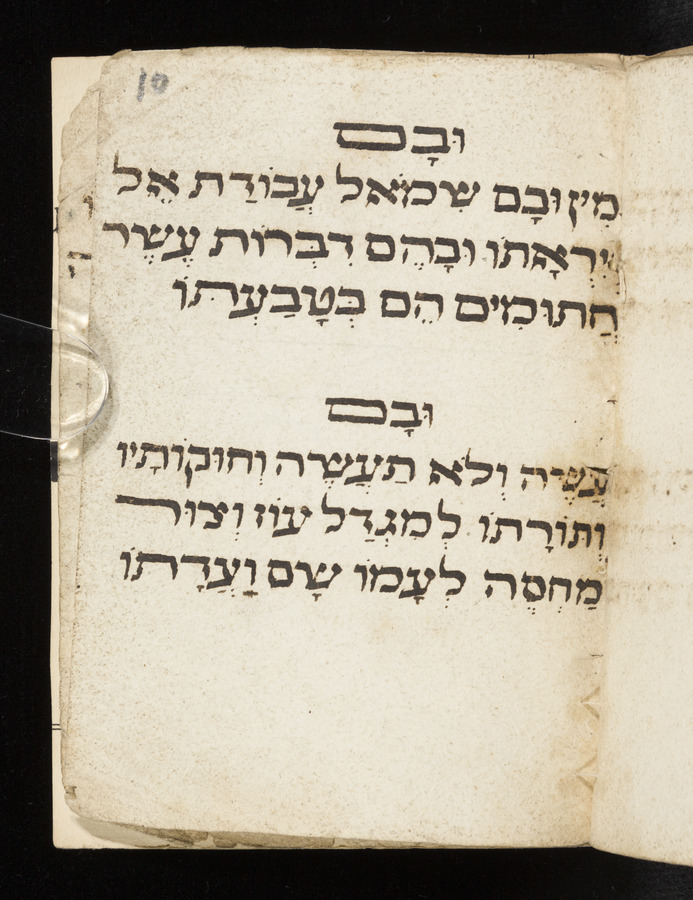 10
וּבָם
מִין וּבָם שְׂמֹאל עֲבוֹדַת אֵל
יִרְאָתוֹ וּבָהֶם דִּבְּרוֹת עֲשֶׂר
חֲתוּמִים הֵם בְּטַבַּעְתּוֹ
וּבָם
עֲשֵׂה וְלֹא תַעֲשֶׂה וְחוּקוֹתָיו
וְתּוֹרָתוֹ לְמִגְדַל עוֹז וְצוּר
מַחְסֶה לְעַמּוֹ שָׂם וַעֲדָתוֹ